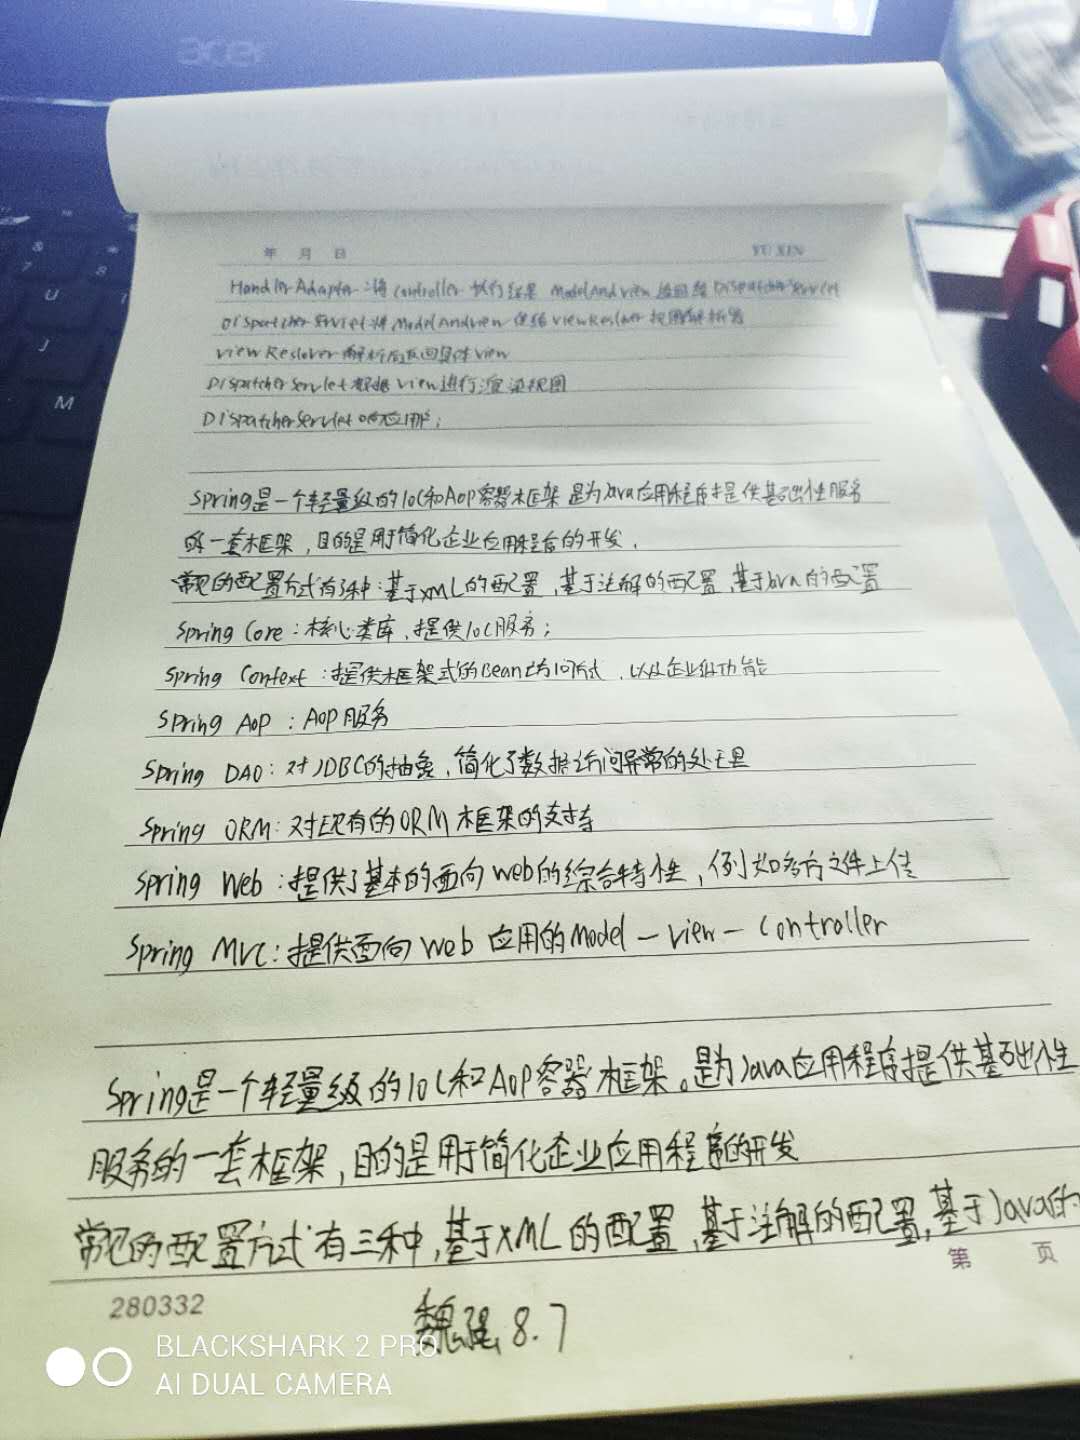 acer
年 月 日 YU XIN
HandlerAdapter:将controller执行结果 ModelAndView返回给DispatcherServlet
DispatcherServlet将ModelAndView传给ViewReslover视图解析器
ViewReslover解析后返回具体View
DispatcherServlet根据View进行渲染视图
DispatcherServlet响应用户;
Spring是一个轻量级的IOC和AOP容器框架 是为Java应用程序提供基础性服务
的一套框架,目的是用于简化企业应用程序的开发.
常见的配置方式有3种:基于XML的配置,基于注解的配置,基于Java的配置
Spring Core:核心类库,提供IOC服务;
Spring Context:提供框架式的Bean访问方式,以及企业级功能
Spring AOP:AOP服务
Spring DAO:对JDBC的抽象,简化了数据访问异常的处理
Spring ORM:对现有的ORM框架的支持
Spring Web:提供了基本的面向Web的综合特性,例如多方文件上传
Spring MVC:提供面向Web应用的Model-View-Controller
Spring是一个轻量级的IOC和AOP容器框架。是为Java应用程序提供基础性
服务的一套框架,目的是用于简化企业应用程序的开发
常见的配置方式有三种,基于XML的配置,基于注解的配置,基于Java的
第 页
280332
魏强 8.7
BLACKSHARK 2 PRO
AI DUAL CAMERA